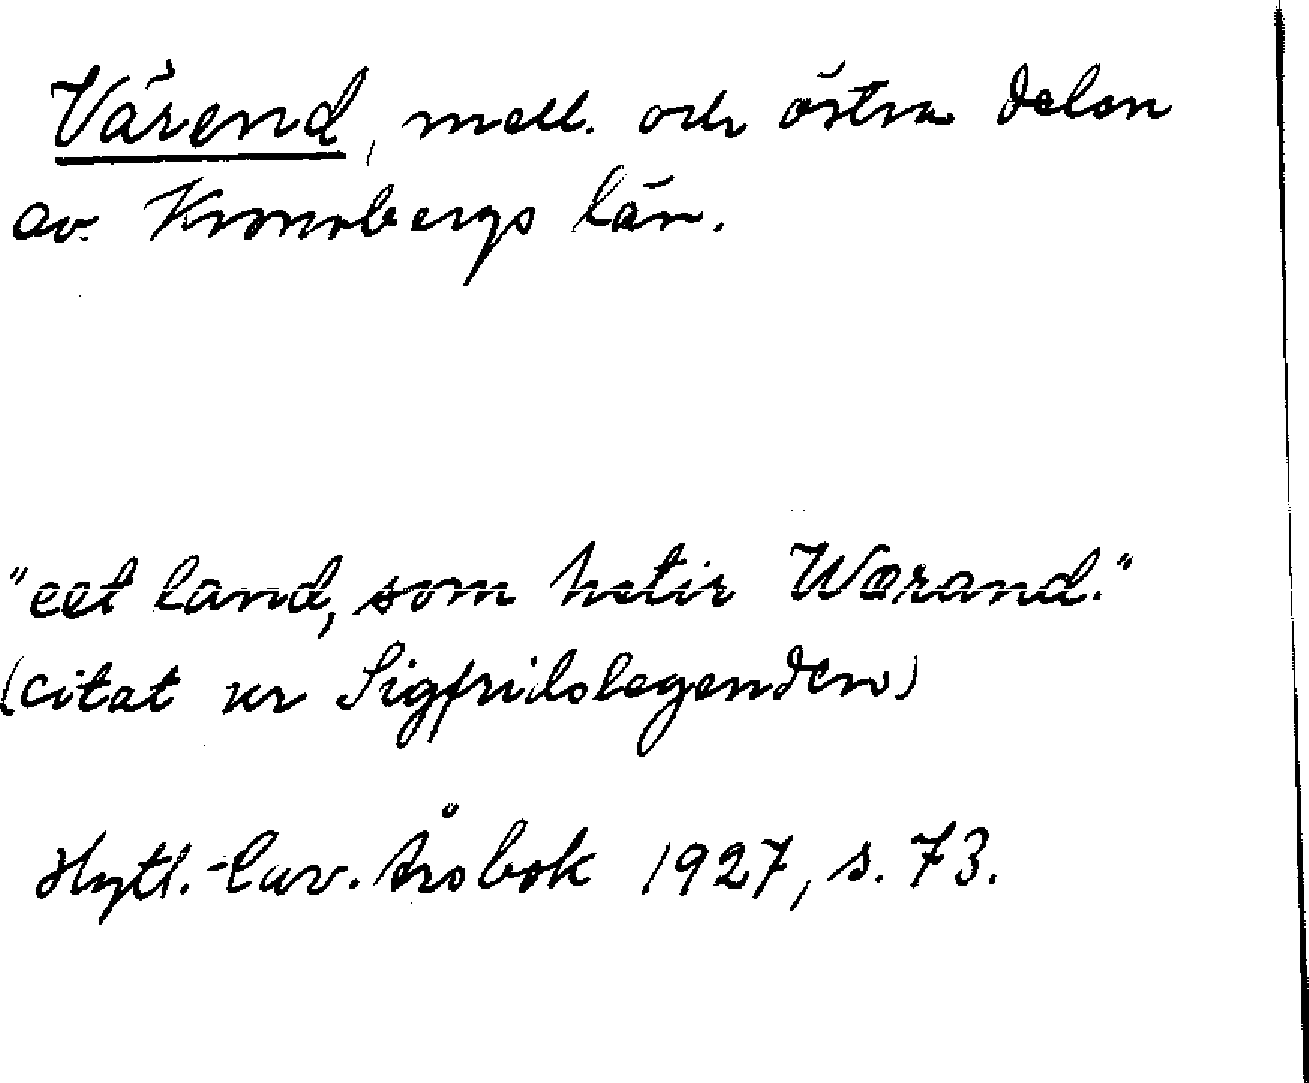 Värend, mell. och östra delen
av Kronobergs län.
"eet land, som hetir Wærand."
(citat ur Sigfridslegenden)
Hylt.-Cav. Årsbok 1927, s. 73.